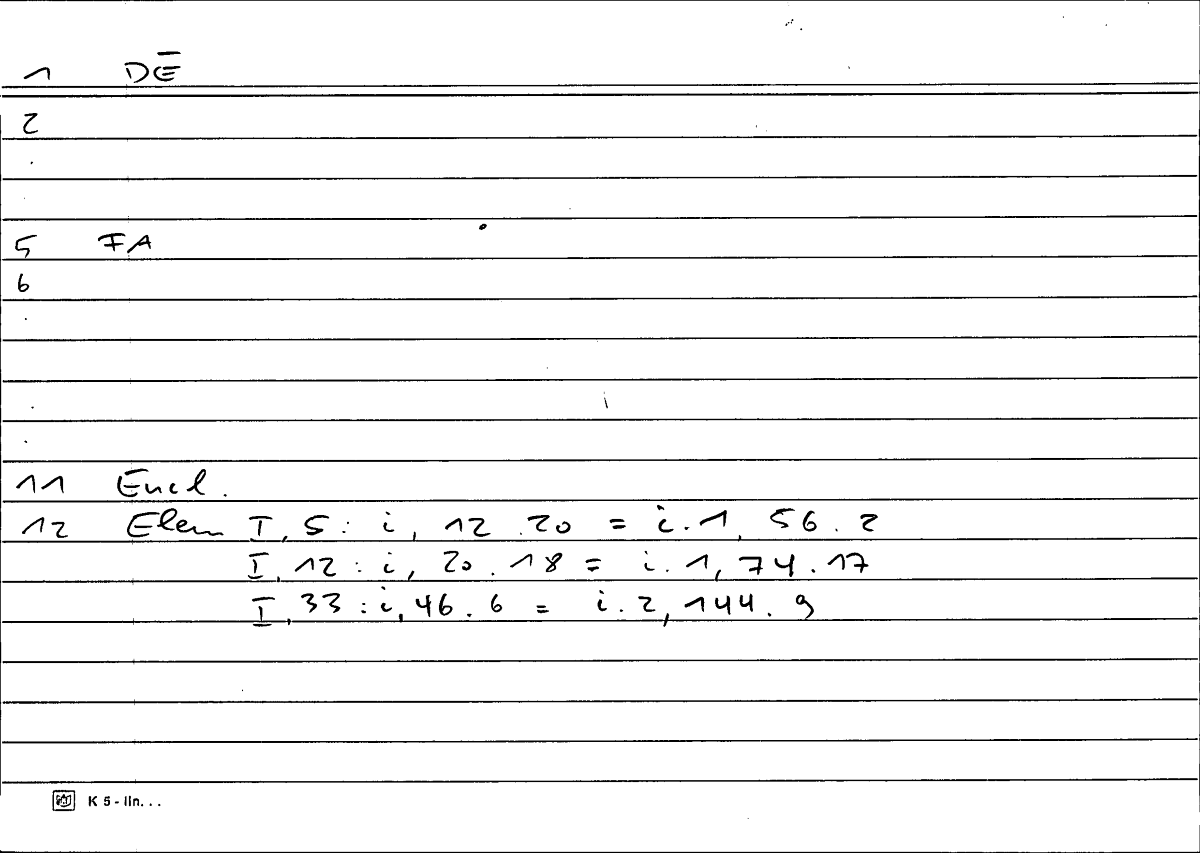 1 DĒ
2
.
5 FA
6
.
.
.
11 Eucl.
12 Elem I, 5 : i, 12.20 = i.1, 56.2
I, 12 : i, 20.18 = i.1, 74.17
I, 33 : i, 46.6 = i.2, 144.9
K 5 - lin...